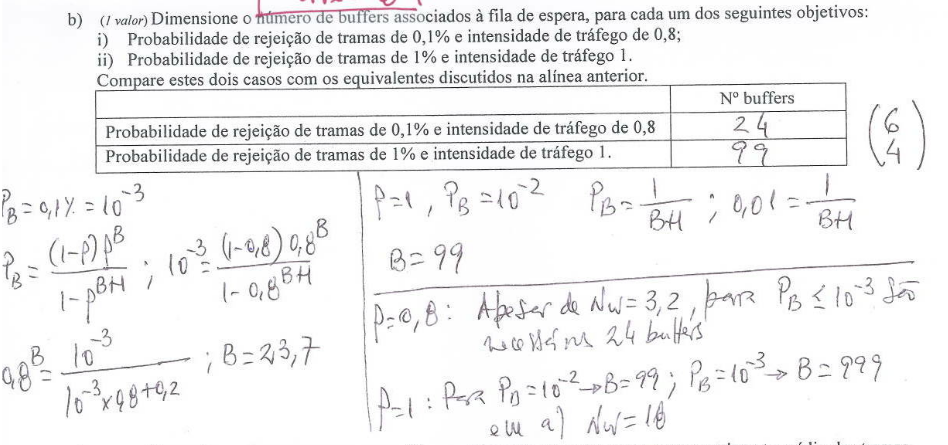 b) (1 valor) Dimensione o número de buffers associados à fila de espera, para cada um dos seguintes objetivos:
i) Probabilidade de rejeição de tramas de 0,1% e intensidade de tráfego de 0,8;
ii) Probabilidade de rejeição de tramas de 1% e intensidade de tráfego 1.
Compare estes dois casos com os equivalentes discutidos na alínea anterior.
Nº buffers
Probabilidade de rejeição de tramas de 0,1% e intensidade de tráfego de 0,8 24
Probabilidade de rejeição de tramas de 1% e intensidade de tráfego 1. 99
(6 4)
P_B = 0,1% = 10^-3
P_B = (1-ρ)ρ^B / 1-ρ^B+1 ; 10^-3 = (1-0,8) 0,8^B / 1-0,8^B+1
0,8^B = 10^-3 / 10^-3×0,8+0,2 ; B = 23,7
ρ=1 , P_B = 10^-2 P_B = 1 / B+1 ; 0,01 = 1 / B+1
B = 99
ρ=0,8 : Apesar de Nw = 3,2 , para P_B ≤ 10^-3 são
necessários 24 buffers
ρ=1 : Para P_B = 10^-2 → B = 99 ; P_B = 10^-3 → B = 999
em a) Nw = 18